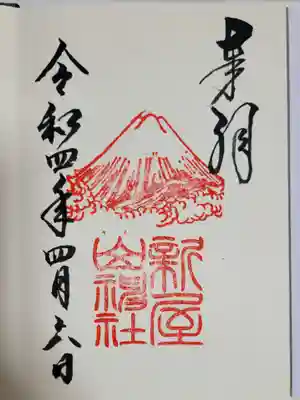 奉拝
新屋
山神社
令和四年四月六日